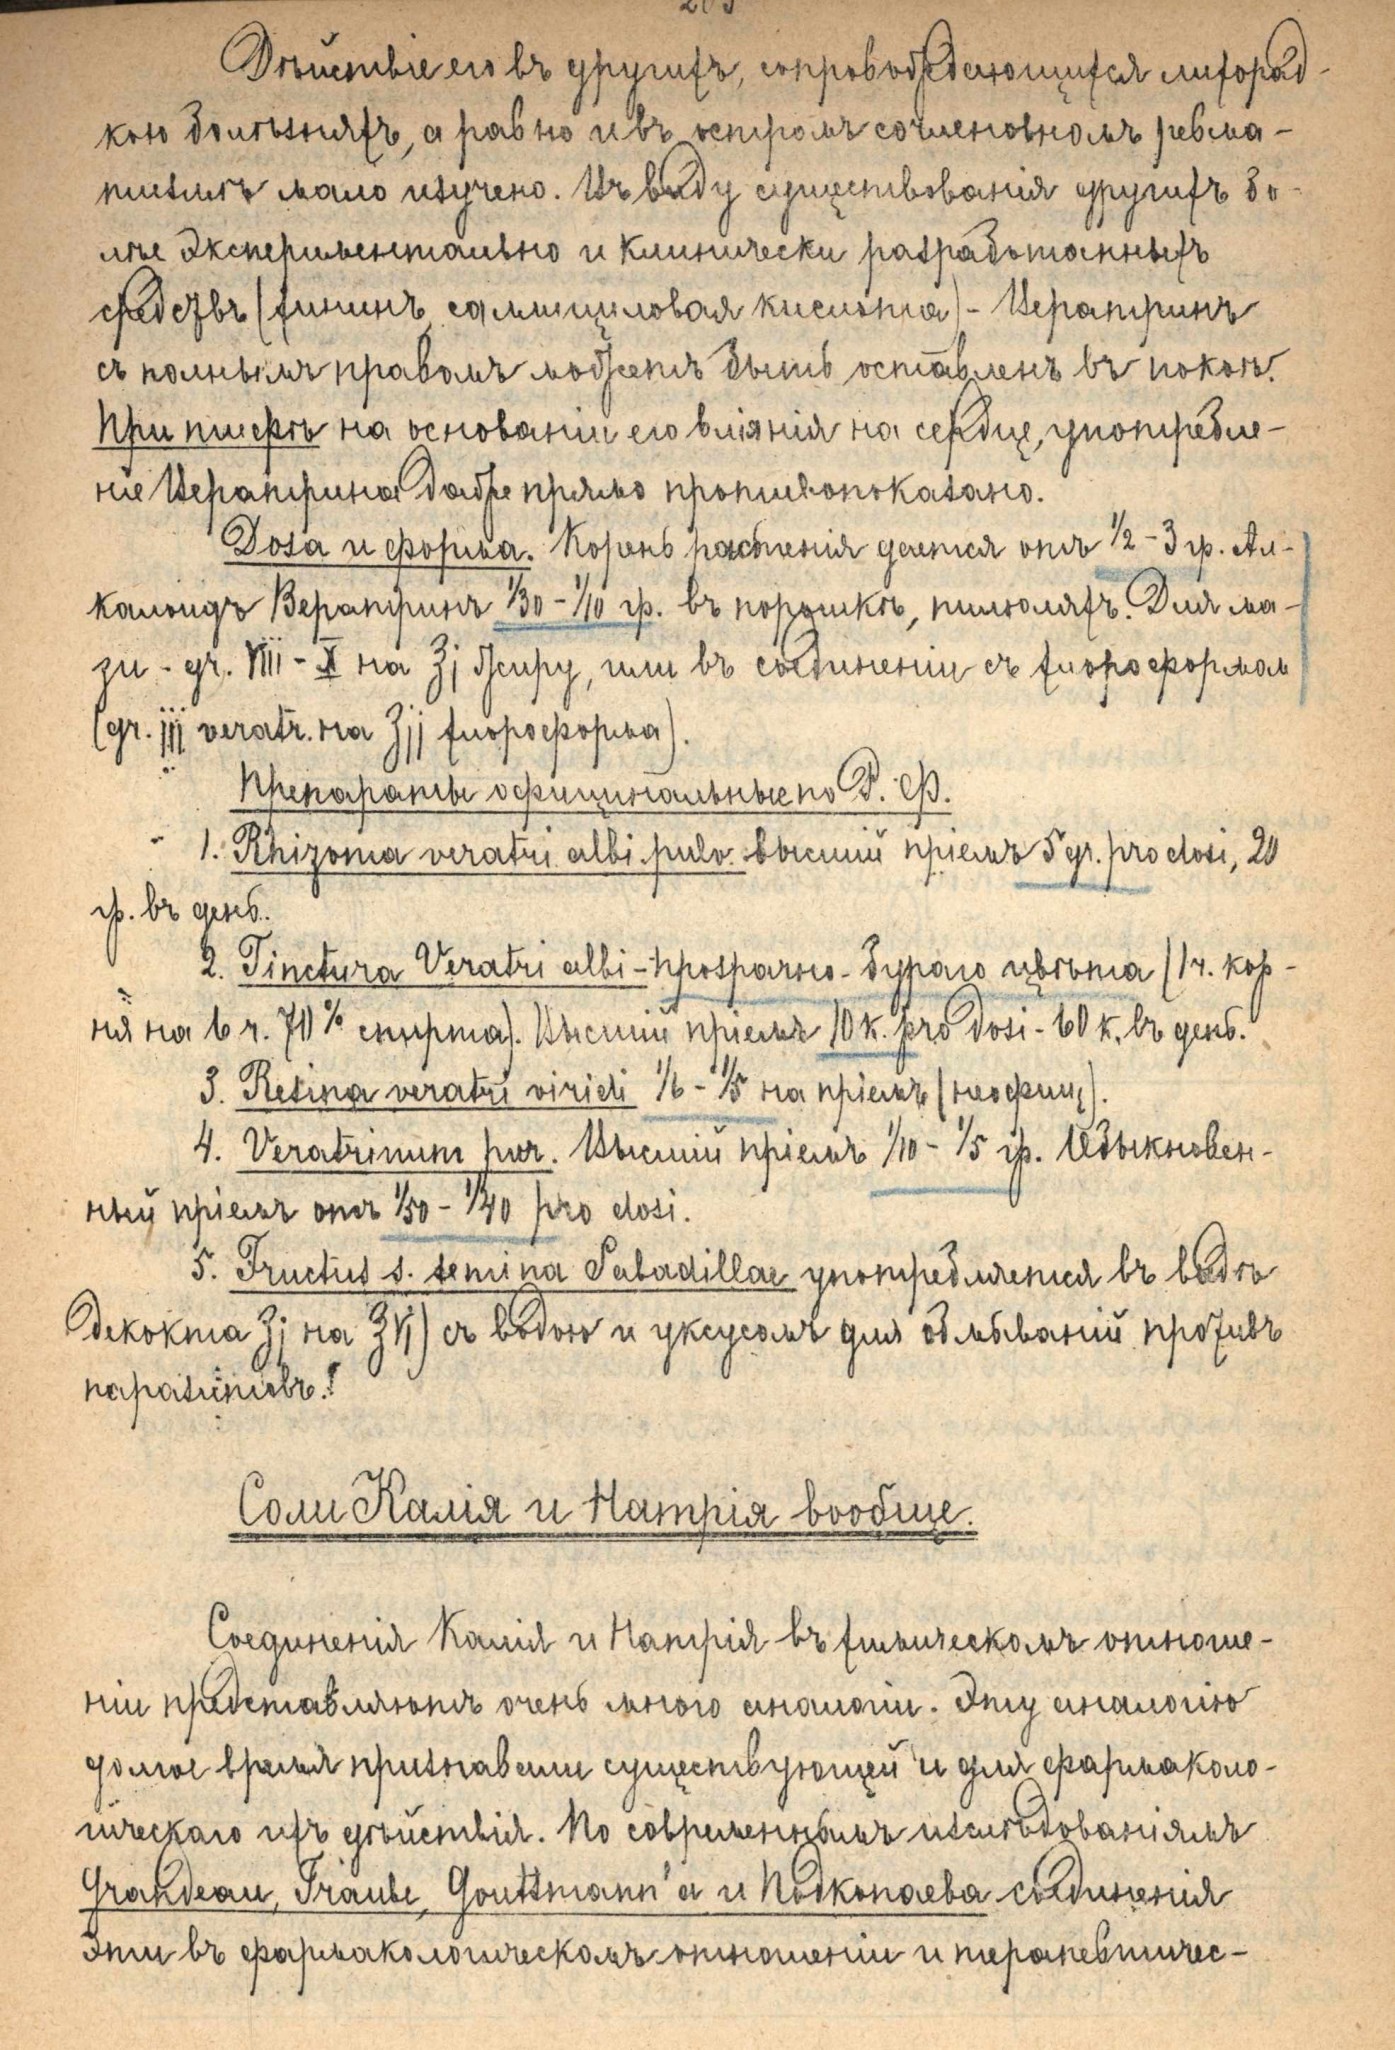 Дѣйствіе его въ другихъ, сопровождающихся лихорад-
кою болѣзняхъ, а равно и въ остромъ сочленовномъ ревма-
тизмѣ мало изучено. Въ виду существованія другихъ бо-
лѣе экспериментально и клинически разработанныхъ
средствъ (хининъ, салициловая кислота) - Вератринъ
съ полнымъ правомъ можетъ быть оставленъ въ покоѣ.
При тифѣ на основаніи его вліянія на сердце, употребле-
ніе Вератрина даже прямо противопоказано.
Доза и форма. Корень растенія дается отъ 1/2 - 3 гр. Ал-
калоидъ Вератринъ 1/30 - 1/10 гр. въ порошкѣ, пилюляхъ. Для ма-
зи - gr. VIII - X на ʒj жиру, или въ соединеніи съ хлороформом
(gr. iij veratr. на ʒjj хлороформа).
Препараты официнальные по Р. Ф.
1. Rhizoma veratri albi pulv. высшій пріемъ 5 gr. pro dosi, 20
гр. въ день.
2. Tinctura Veratri albi - прозрачно - бураго цвѣта (1 ч. кор-
ня на 6 ч. 70% спирта). Высшій пріемъ 10 к. pro dosi - 60 к. въ день.
3. Resina veratri viridi 1/6 - 1/5 на пріемъ (неофиц).
4. Veratrinum pur. Высшій пріемъ 1/10 - 1/5 гр. Обыкновен-
ный пріемъ отъ 1/50 - 1/40 pro dosi.
5. Fructus s. semina Sabadillae употребляется въ видѣ
декокта ʒj на ʒVj) съ водою и уксусомъ для обмываній противъ
паразитовъ.
Соли Калія и Натрія вообще.
Соединенія Калія и Натрія въ химическомъ отноше-
ніи представляютъ очень много аналогіи. Эту аналогію
долгое время признавали существующей и для фармаколо-
гическаго ихъ дѣйствія. По современнымъ изслѣдованіямъ
Grandeau, Traube, Gouttmann'а и Подкопаева соединенія
эти въ фармакологическомъ отношеніи и терапевтичес-